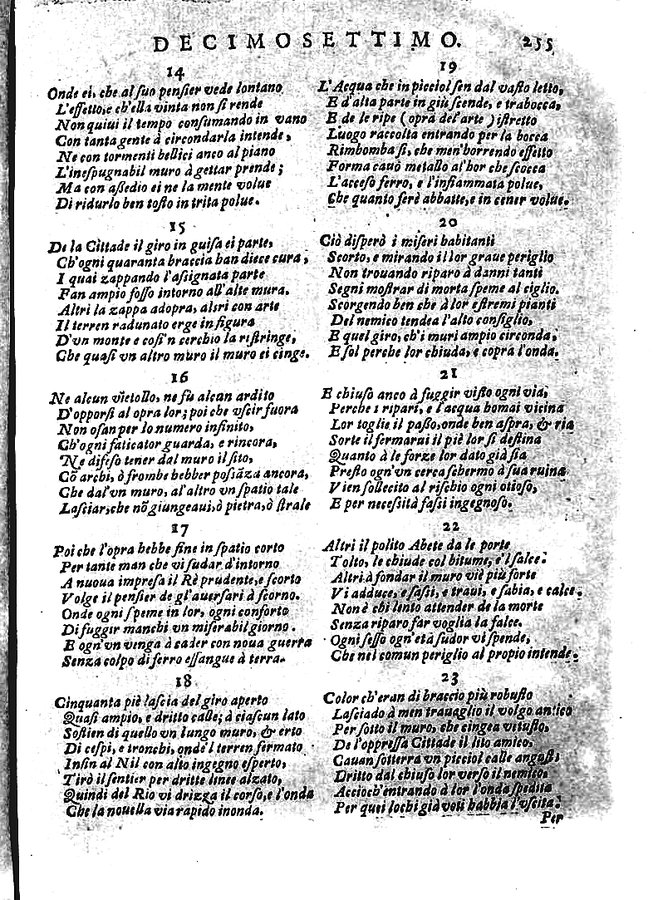 DECIMOSETTIMO. 255
14
Onde ei, che al suo pensier vede lontano
L'effetto, e ch'ella vinta non si rende
Non quiui il tempo consumando in vano
Con tanta gente à circondarla intende,
Ne con tormenti bellici anco al piano
L'inespugnabil muro à gettar prende;
Ma con assedio ei ne la mente volue
Di ridurlo ben tosto in trita polue.
15
De la Cittade il giro in guisa ei parte,
Ch'ogni quaranta braccia han diece cura,
I quai zappando l'assignata parte
Fan ampio fosso intorno all'alte mura.
Altri la zappa adopra, altri con arte
Il terren radunato erge in figura
D'vn monte e cosi'n cerchio la ristringe,
Che quasi vn altro muro il muro ei cinge.
16
Ne alcun vietollo, ne fù alcun ardito
D'opporsi al opra lor; poi che vscir fuora
Non osan per lo numero infinito,
Ch'ogni faticator guarda, e rincora,
Ne difeso tener dal muro il sito,
Cõ archi, ò frombe hebber possãza ancora,
Che dal'vn muro, al'altro vn spatio tale
Lasciar, che nõ giungeaui, ò pietra, ò strale
17
Poi che l'opra hebbe fine in spatio corto
Per tante man che vi sudar d'intorno
A nuoua impresa il Rè prudente, e scorto
Volge il pensier de gl'auersari à scorno.
Onde ogni speme in lor, ogni conforto
Di fuggir manchi vn miserabil giorno.
E ogn'vn venga à cader con noua guerra
Senza colpo di ferro essangue à terra.
18
Cinquanta piè lascia del giro aperto
Quasi ampio, e dritto calle; à ciascun lato
Sostien di quello vn lungo muro, & erto
Di cespi, e tronchi, onde'l terren fermato
Insin al Nil con alto ingegno esperto,
Tirò il sentier per dritte linee alzato,
Quindi del Rio vi drizza il corso, e l'onda
Che la nouella via rapido inonda.
19
L'Acqua che in picciol sen dal vasto letto,
E d'alta parte in giù scende, e trabocca,
E de le ripe (opra del'arte) istretto
Luogo raccolta entrando per la bocca
Rimbomba sì, che men'horrendo effetto
Forma cauò metallo al'hor che scocca
L'acceso ferro, e l'infiammata polue,
Che quanto ferè abbatte, e in cener volue.
20
Ciò disperò i miseri habitanti
Scorto, e mirando il lor graue periglio
Non trouando riparo à danni tanti
Segni mostrar di morta speme al ciglio.
Scorgendo ben che à lor estremi pianti
Del nemico tendea l'alto consiglio,
E quel giro, ch'i muri ampio circonda,
E sol perche lor chiuda, e copra l'onda.
21
E chiuso anco à fuggir visto ogni via,
Perche i ripari, e l'acqua homai vicina
Lor toglie il passo, onde ben aspra, & ria
Sorte il fermarui il piè lor si destina
Quanto à le forze lor dato già sia
Presto ogn'vn cerca schermo à sua ruina
Vien sollecito al rischio ogni otioso,
E per necessità fassi ingegnoso.
22
Altri il polito Abete da le porte
Tolto, le chiude col bitume, e'l salce.
Altri à fondar il muro vie più forte
Vi adduce, e sassi, e traui, e sabia, e calce.
Non è chi lento attender de la morte
Senza riparo far voglia la falce.
Ogni sesso ogn'età sudor vi spende,
Che nel comun periglio al propio intende.
23
Color ch'eran di braccio più robusto
Lasciado à men trauaglio il volgo antico
Per sotto il muro, che cingea vetusto,
De l'oppressa Cittade il lito amico,
Cauan sotterra vn picciol calle angusto,
Dritto dal chiuso lor verso il nemico,
Accioch'entrando à lor l'onda spedita
Per quei lochi già voti habbia l'vscita.
Per